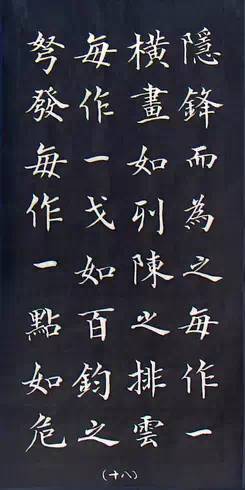 隱鋒而為之每作一
橫畫如列陳之排雲
每作一戈如百鈞之
弩發每作一點如危
（十八）